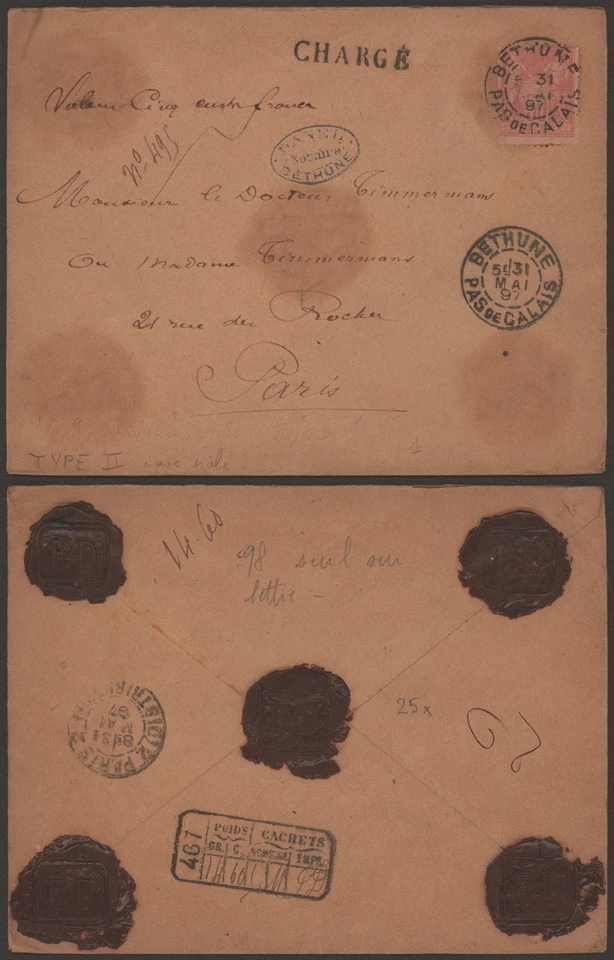 CHARGÉ
BETHUNE
31
97
PAS DE CALAIS
Valeur Cinq cents francs
No 495
Notaire
BÉTHUNE
Monsieur le Docteur Timmermans
Ou Madame Timmermans
21 rue du Rocher
Paris
BETHUNE
5E 31
MAI
97
PAS DE CALAIS
TYPE II
14.60
98 seul sur
lettre -
25x
PARIS
DISTRIBUTION
31
MAI
97
467
POIDS CACHETS
GR. C. NOMBRE EMPR.
14 60